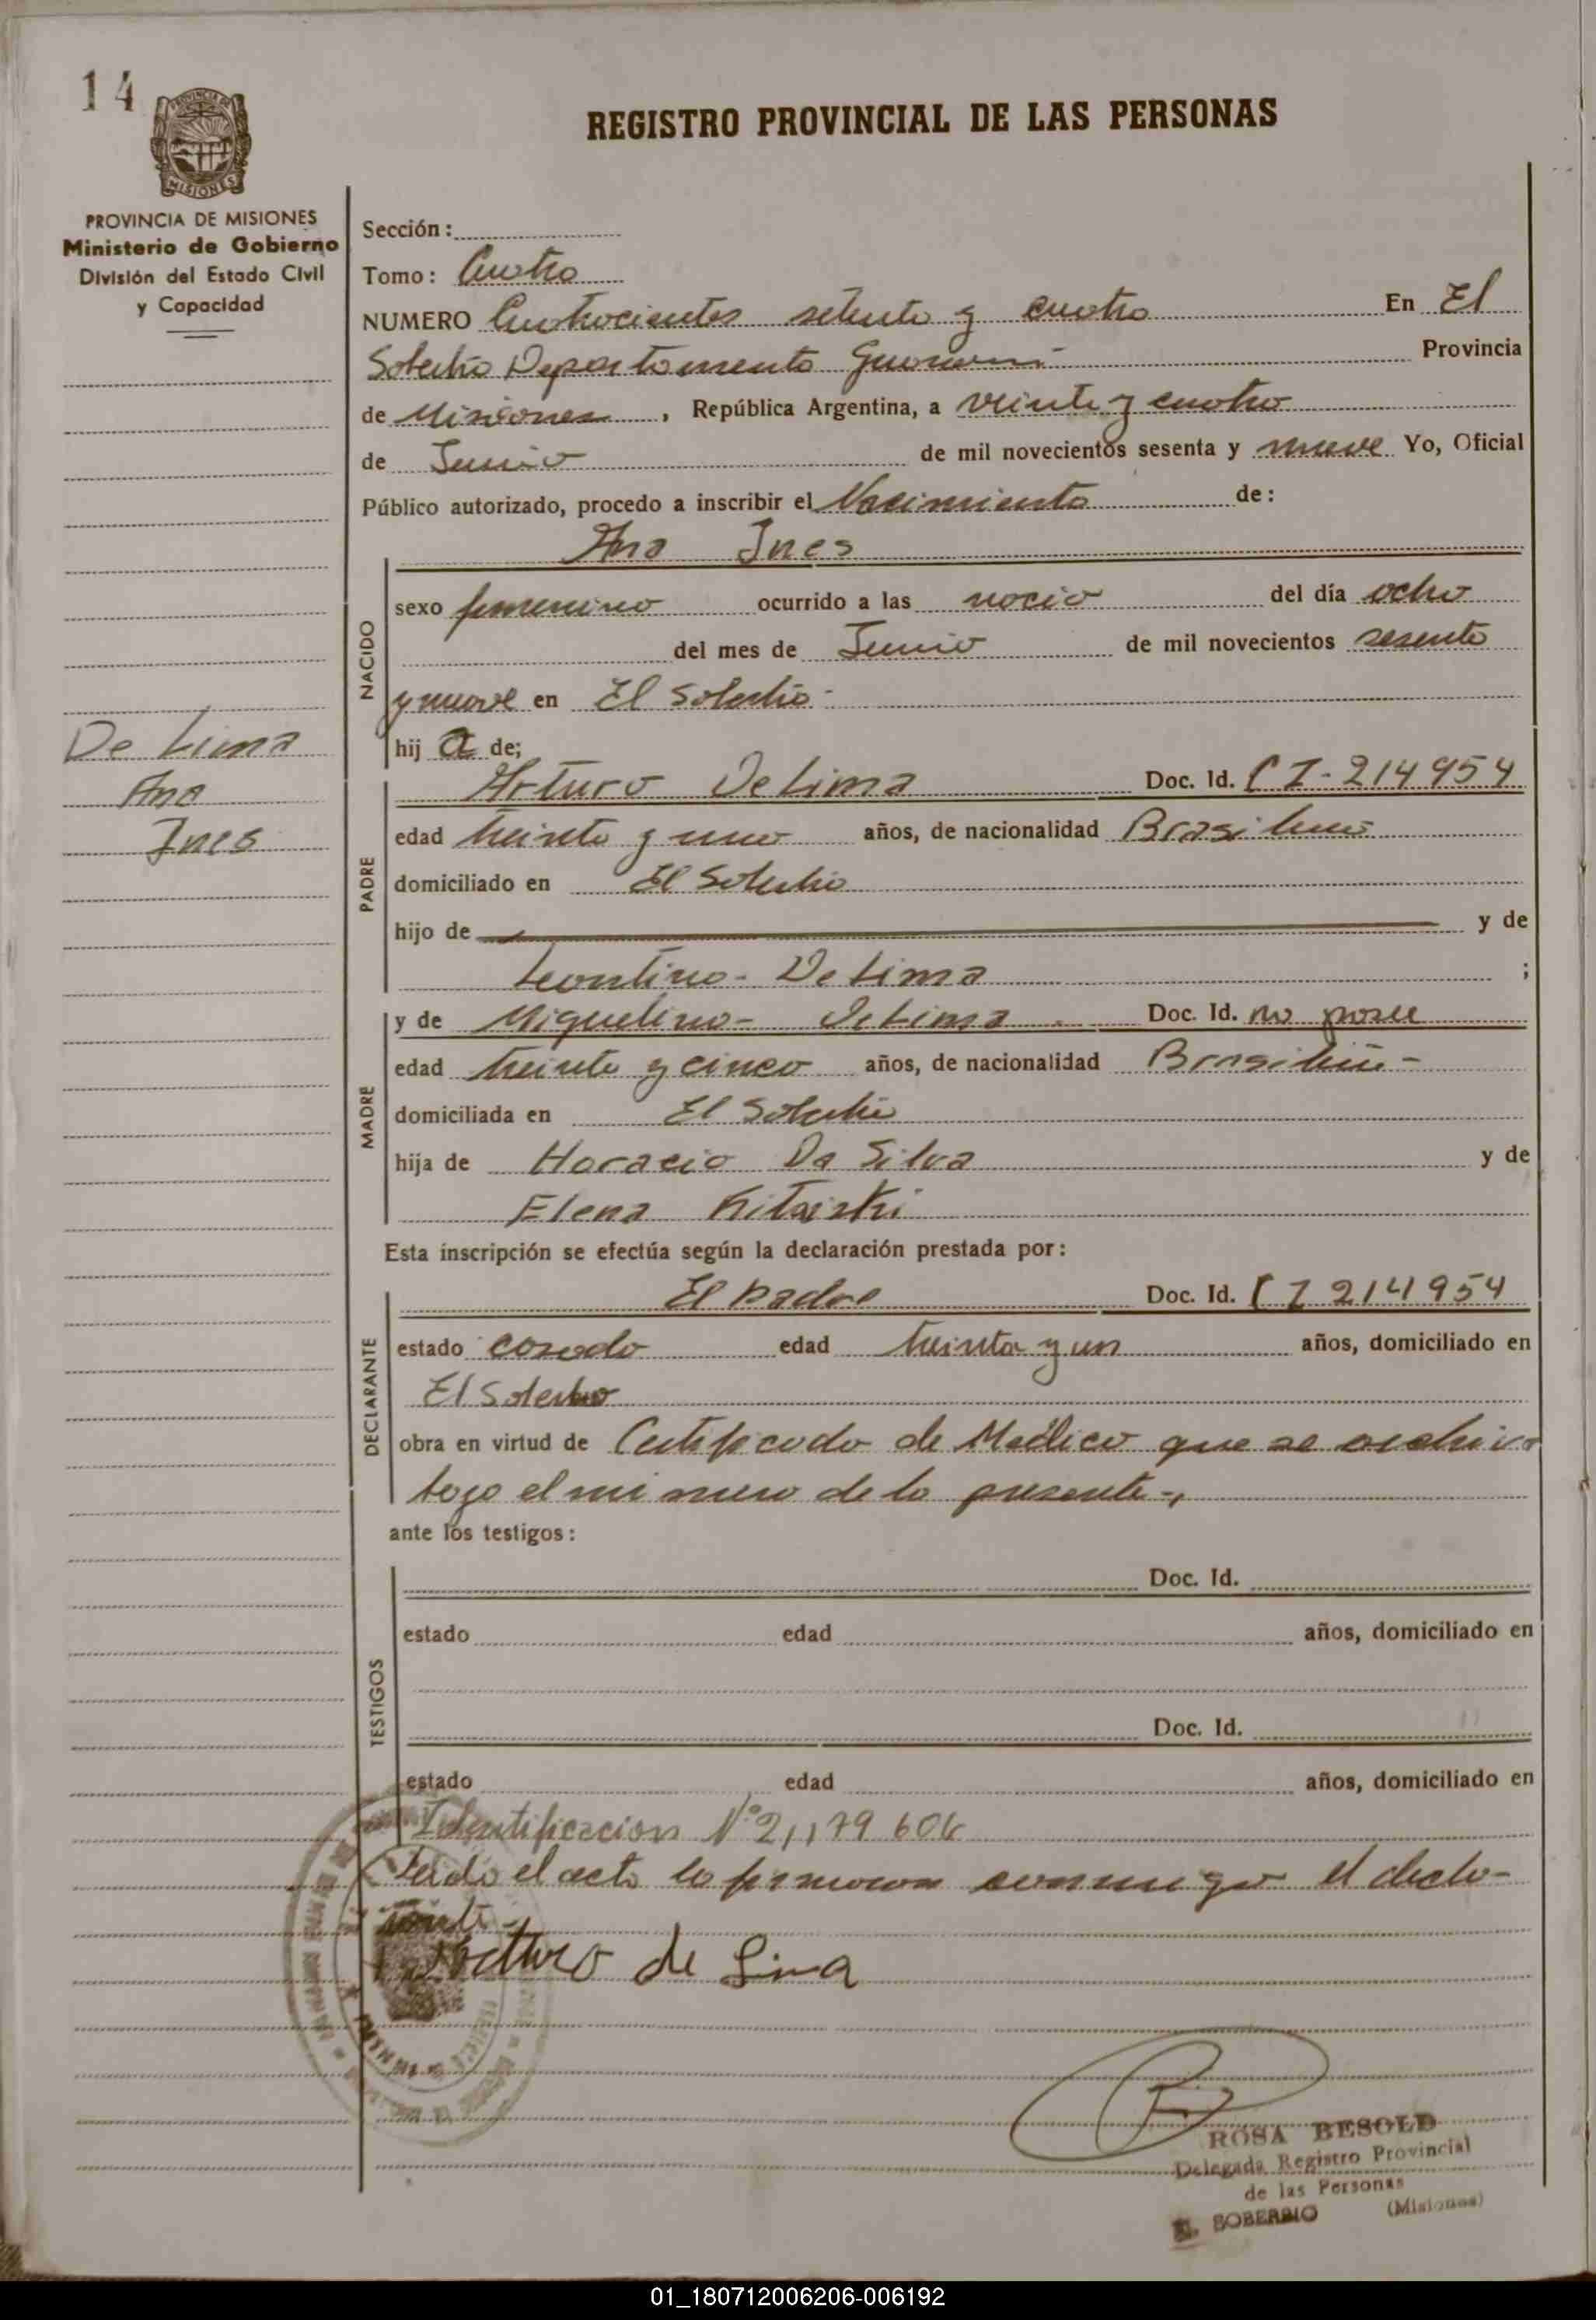 14
REGISTRO PROVINCIAL DE LAS PERSONAS
PROVINCIA DE MISIONES
Ministerio de Gobierno
División del Estado Civil
y Capacidad
Sección:
Tomo: Cuatro
NUMERO Cuatrocientos setenta y cuatro En El
Soberbio Departamento Guarani Provincia
de Misiones, República Argentina, a veinte y cuatro
de Junio de mil novecientos sesenta y nueve Yo, Oficial
Público autorizado, procedo a inscribir el Nacimiento de:
Ana Ines
NACIDO
sexo femenino ocurrido a las del día ocho
del mes de Junio de mil novecientos sesenta
y nueve en El Soberbio-
hij a de;
De Lima
Ana
Ines
PADRE
Arturo De Lima Doc. Id. C I-214954
edad treinta y uno años, de nacionalidad Brasilero
domiciliado en El Soberbio
hijo de y de
Leontino- De Lima ;
MADRE
y de Miguelina- De Lima Doc. Id. no posee
edad treinta y cinco años, de nacionalidad Brasileña-
domiciliada en El Soberbio
hija de Horacio Da Silva y de
Elena
Esta inscripción se efectúa según la declaración prestada por:
DECLARANTE
El padre Doc. Id. C I 214954
estado casado edad treinta y un años, domiciliado en
El Soberbio
obra en virtud de Certificado de Medico que se archiva
bajo el numero de la presente-,
ante los testigos:
TESTIGOS
Doc. Id.
estado edad años, domiciliado en
Doc. Id.
estado edad años, domiciliado en
Identificacion Nº 21,179 606
Leido el acta la firmaron conmigo el decla-
rante-
Arturo de Lima
ROSA BESOLD
Delegada Registro Provincial
de las Personas
EL SOBERBIO (Misiones)
01_180712006206-006192